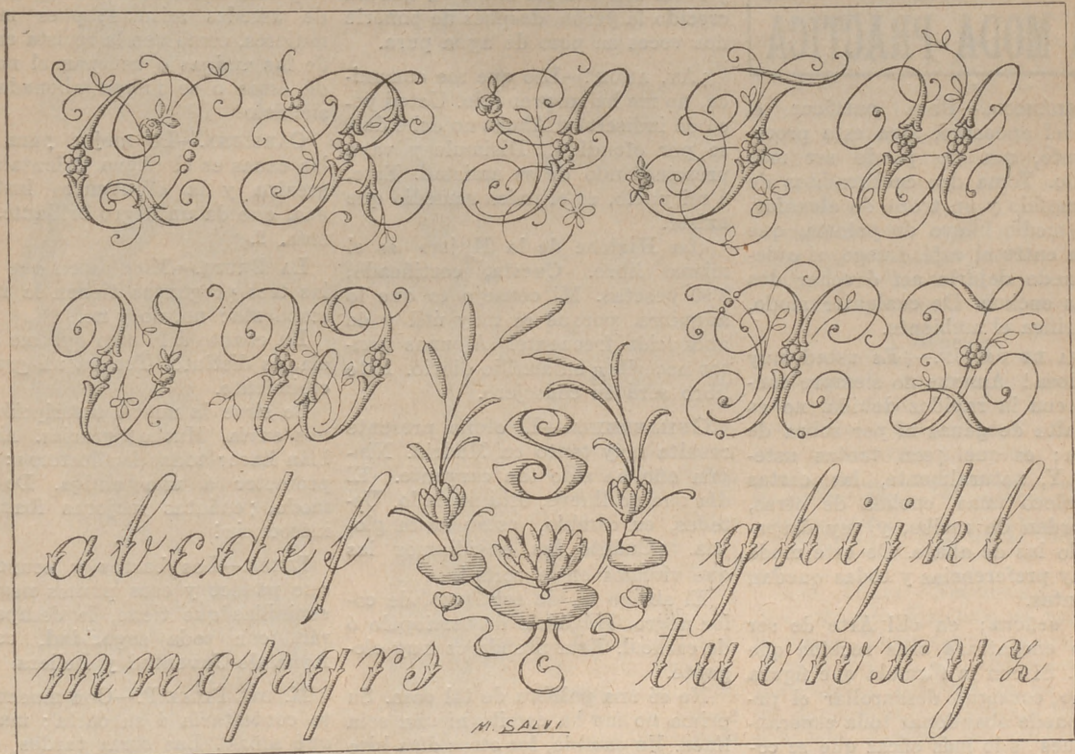 Q R S T U
V W X Z
S
a b c d e f g h i j k l
m n o p q r s t u v w x y z
M. SALVI